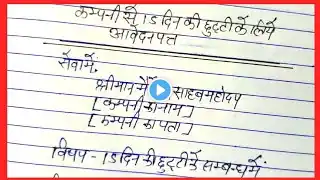 कम्पनी से 15 दिन की छुट्टी के लिये
आवेदन पत्र
सेवा में,
श्रीमान मैनेजर साहब महोदय
[कम्पनी का नाम]
[कम्पनी का पता]
विषय - 15 दिन की छुट्टी के सम्बन्ध में